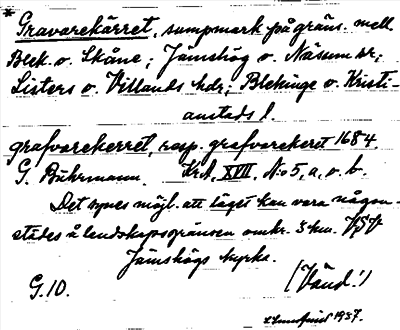 * Gravarekärret, sumpmark på gräns. mell.
Blek. o. Skåne; Jämshög o. Näsum sr;
Listers o. Villands hdr; Blekinge o. Kristi-
anstads l.
grafvarekerret, resp. grafvarekeret 1684.
G. Buhrmann. KrA, XVII, No 5, a, o. b.
Det synes möjl. att läget kan vara någon-
stedes å landskapsgränsen omkr. 3 km. VSV
Jämshögs kyrka.
G.10. (Vänd!)
1937.